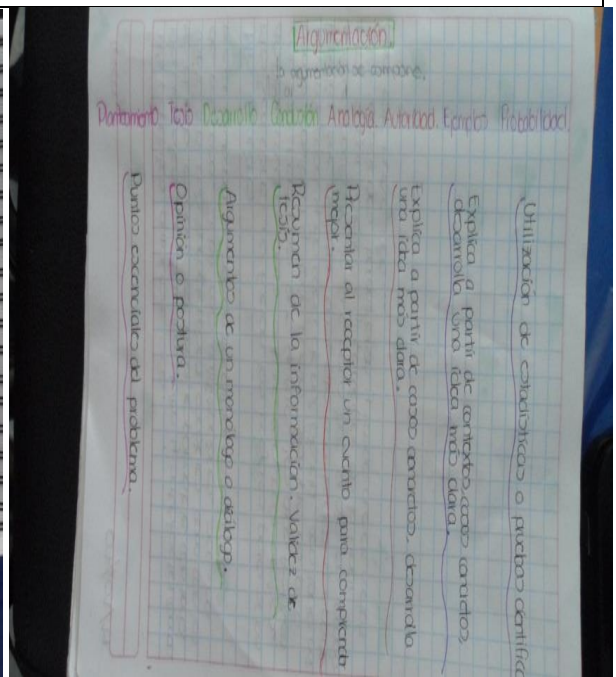 Argumentación.
la argumentación se compone.
Planteamiento Tesis Desarrollo Conclusión Analogía Autoridad. Ejemplos Probabilidad.
Puntos escenciales del problema.
Opinión o postura.
Argumentos de un monólogo o diálogo.
Resumen de la información. Validez de
tesis.
Presentar al receptor un evento para comprender
mejor.
Explica a partir de casos concretos, desarrolla
una idea más clara.
Explica a partir de contextos, casos concretos
desarrolla una idea más clara.
Utilización de estadísticas o pruebas científic